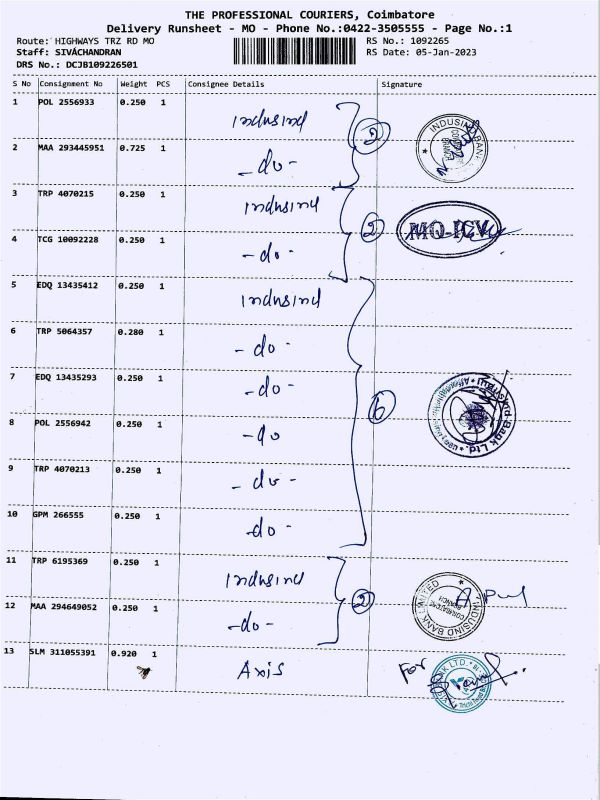 THE PROFESSIONAL COURIERS, Coimbatore
Delivery Runsheet - MO - Phone No.:0422-3505555 - Page No.:1
Route: HIGHWAYS TRZ RD MO RS No.: 1092265
Staff: SIVACHANDRAN RS Date: 05-Jan-2023
DRS No.: DCJB109226501
S No Consignment No Weight PCS Consignee Details Signature
1 POL 2556933 0.250 1 Indusind
2 MAA 293445951 0.725 1 - do -
2
INDUSIND BANK
3 TRP 4070215 0.250 1 Indusind
4 TCG 10092228 0.250 1 - do -
2
5 EDQ 13435412 0.250 1 Indusind
6 TRP 5064357 0.280 1 - do -
7 EDQ 13435293 0.250 1 - do -
8 POL 2556942 0.250 1 - do
9 TRP 4070213 0.250 1 - do -
10 GPM 266555 0.250 1 - do -
6
IndusInd Bank Ltd.
11 TRP 6195369 0.250 1 Indusind
12 MAA 294649052 0.250 1 - do -
2
INDUSIND BANK LIMITED
COIMBATORE
BRANCH
13 SLM 311055391 0.920 1 Axis
For